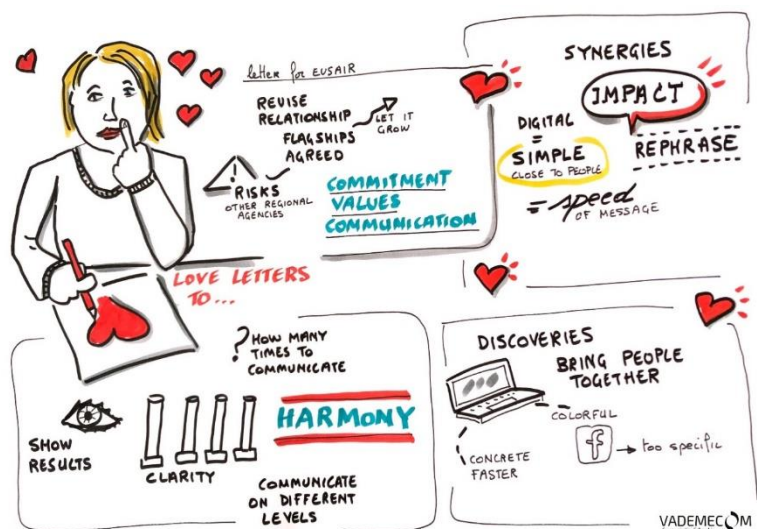 letter for EUSAIR
REVISE
RELATIONSHIP
LET IT
GROW
FLAGSHIPS
AGREED
RISKS
OTHER REGIONAL
AGENCIES
COMMITMENT
VALUES
COMMUNICATION
LOVE LETTERS
TO...
SYNERGIES
IMPACT
DIGITAL
=
SIMPLE
CLOSE TO PEOPLE
= speed
OF MESSAGE
REPHRASE
? HOW MANY
TIMES TO
COMMUNICATE
SHOW
RESULTS
CLARITY
HARMONY
COMMUNICATE
ON DIFFERENT
LEVELS
DISCOVERIES
BRING PEOPLE
TOGETHER
COLORFUL
CONCRETE
FASTER
f → too specific
VADEMECOM